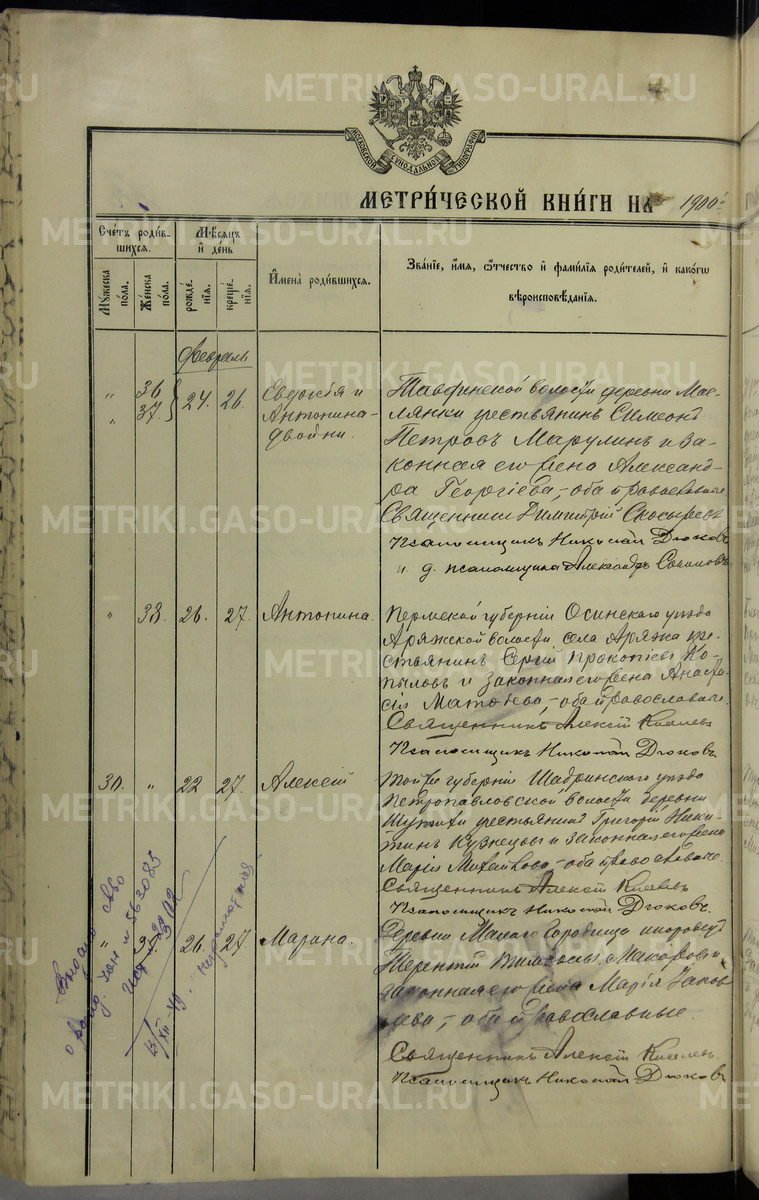 METRIKI.GASO-URAL.RU
МОСКОВСКОЙ СѴНОДАЛЬНОЙ ТИПОГРАФІИ
МЕТРИ́ЧЕСКОЙ КНИ́ГИ НА 1900 г
Сче́тъ роди́в-
шихся.
Мѣ́сяцъ
и҆ де́нь
Му́жеска по́ла.
Же́нска по́ла.
рожде́-
нїя.
креще́-
нїя.
И҆́мена̀ роди́вшихся.
Зва́нїе, и҆́мя, ѻ҆́тчество и҆ фами́лїя роди́телей, и҆ како́гѡ
вѣроисповѣ́данїя.
Февраль
" 36
" 37 } 24. 26.
Евдокія и
Антонина -
двойни.
Тавдинской волости деревни Мас-
лянки крестьянинъ Симеонъ
Петровъ Марулинъ и за-
конная его жена Александ-
ра Георгіева, - оба православные
Священникъ Димитрій
Псаломщикъ Николай Дюковъ
и. д. псаломщика Александръ
" 38. 26. 27. Антонина.
Пермской губерніи Осинскаго уѣзда
Аряжской волости села Аряжа кре-
стьянинъ Сергій Прокопіевъ Ко-
пыловъ и законная его жена Анаста-
сія Матѳіева, - оба православные.
Священникъ Алексій Киселевъ
Псаломщикъ Николай Дюковъ.
30. " 22 27. Алексій
Той же губерніи Шадринского уѣзда
Петропавловской волости деревни
крестьянинъ Григорій Ники-
тинъ Кузнецовъ и законная его жена
Марія Михайлова - оба православные.
Священникъ Алексій Киселевъ
Псаломщикъ Николай Дюковъ.
" 39. 26. 27 Марина.
Деревни Малаго Городища инородецъ
Терентій Макаровъ и
законная его жена Марія Яков-
лева, - оба православные.
Священникъ Алексій Киселевъ
Псаломщикъ Николай Дюковъ